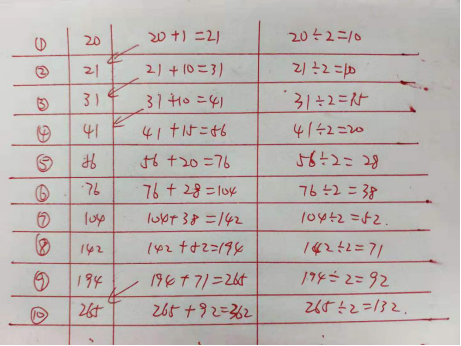 ① 20 20+1=21 20÷2=10
② 21 21+10=31 21÷2=10
③ 31 31+10=41 31÷2=15
④ 41 41+15=56 41÷2=20
⑤ 56 56+20=76 56÷2=28
⑥ 76 76+28=104 76÷2=38
⑦ 104 104+38=142 104÷2=52.
⑧ 142 142+52=194 142÷2=71
⑨ 194 194+71=265 194÷2=92
⑩ 265 265+92=362 265÷2=132.